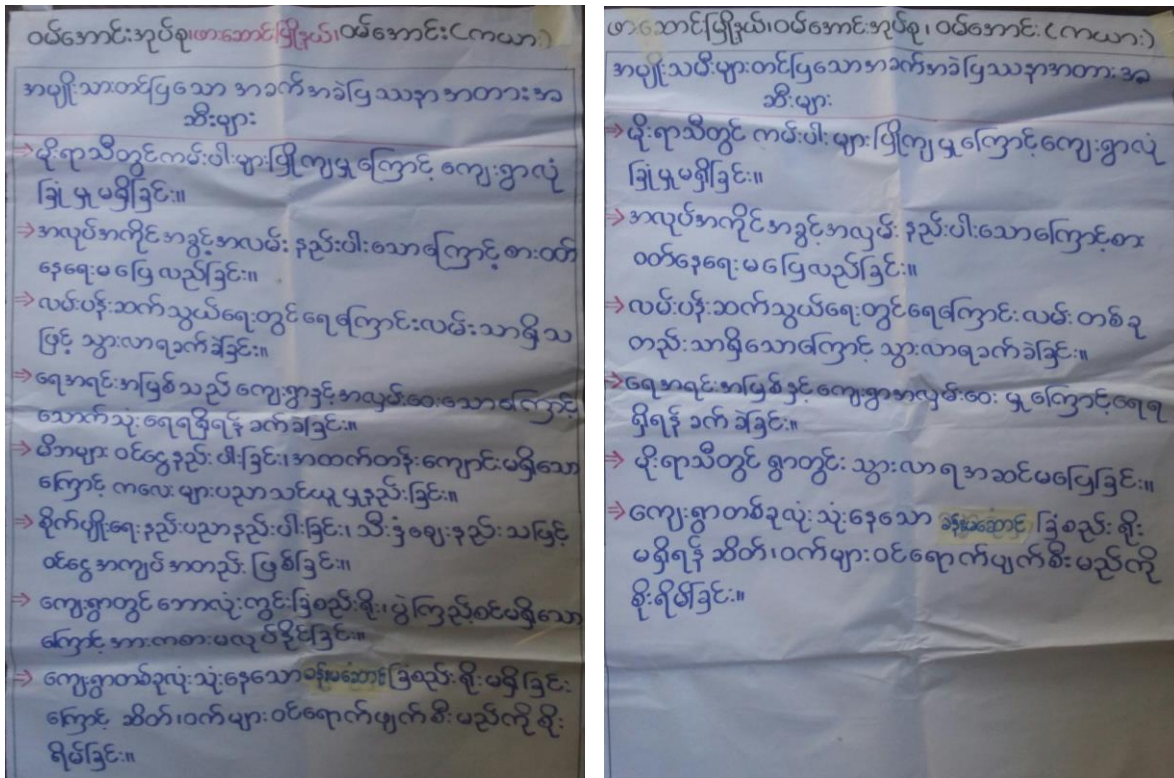 ဝမ်အောင်းအုပ်စု၊ဖားဆောင်မြို့နယ်၊ဝမ်အောင်း(ကယား)
အမျိုးသားတင်ပြသော အခက်အခဲပြဿနာအတားအ
ဆီးများ
⇒ မိုးရာသီတွင်ကမ်းပါးများပြိုကျမှုကြောင့် ကျေးရွာလုံ
ခြုံမှုမရှိခြင်း။
⇒ အလုပ်အကိုင်အခွင့်အလမ်း နည်းပါးသောကြောင့်စားဝတ်
နေရေးမပြေလည်ခြင်း။
⇒ လမ်းပန်းဆက်သွယ်ရေးတွင်ရေကြောင်းလမ်းသာရှိသ
ဖြင့် သွားလာရခက်ခဲခြင်း။
⇒ ရေအရင်းအမြစ်သည် ကျေးရွာနှင့်အလှမ်းဝေးသောကြောင့်
သောက်သုံးရေရရှိရန် ခက်ခဲခြင်း။
⇒ မိဘများ ဝင်ငွေနည်းပါးခြင်း၊အထက်တန်းကျောင်းမရှိသော
ကြောင့် ကလေးများပညာသင်ယူမှုနည်းခြင်း။
⇒ စိုက်ပျိုးရေးနည်းပညာနည်းပါးခြင်း၊ သီးနှံဈေးနည်းသဖြင့်
ဝင်ငွေအကျပ်အတည်း ဖြစ်ခြင်း။
⇒ ကျေးရွာတွင် ဘောလုံးကွင်းခြံစည်းရိုး၊ပွဲကြည့်စင်မရှိသော
ကြောင့်အားကစားမလုပ်နိုင်ခြင်း။
⇒ ကျေးရွာတစ်ခုလုံးသုံးနေသောခန်းမဆောင်ခြံစည်းရိုးမရှိခြင်း
ကြောင့် ဆိတ်၊ဝက်များဝင်ရောက်ဖျက်စီးမည်ကိုစိုး
ရိမ်ခြင်း။
ဖားဆောင်မြို့နယ်၊ဝမ်အောင်းအုပ်စု၊ ဝမ်အောင်း(ကယား)
အမျိုးသမီးများတင်ပြသောအခက်အခဲပြဿနာအတားအ
ဆီးများ
⇒ မိုးရာသီတွင် ကမ်းပါးများပြိုကျမှုကြောင့်ကျေးရွာလုံ
ခြုံမှုမရှိခြင်း။
⇒ အလုပ်အကိုင်အခွင့်အလှမ်း နည်းပါးသောကြောင့်စား
ဝတ်နေရေးမပြေလည်ခြင်း။
⇒ လမ်းပန်းဆက်သွယ်ရေးတွင်ရေကြောင်းလမ်းတစ်ခု
တည်းသာရှိသောကြောင့် သွားလာရခက်ခဲခြင်း။
⇒ ရေအရင်းအမြစ်နှင့်ကျေးရွာအလှမ်းဝေးမှုကြောင့်ရေရ
ရှိရန် ခက်ခဲခြင်း။
⇒ မိုးရာသီတွင် ရွာတွင်းသွားလာရအဆင်မပြေခြင်း။
⇒ ကျေးရွာတစ်ခုလုံးသုံးနေသော ခန်းမဆောင် ခြံစည်းရိုး
မရှိရန် ဆိတ်၊ဝက်များဝင်ရောက်ဖျက်စီးမည်ကို
စိုးရိမ်ခြင်း။